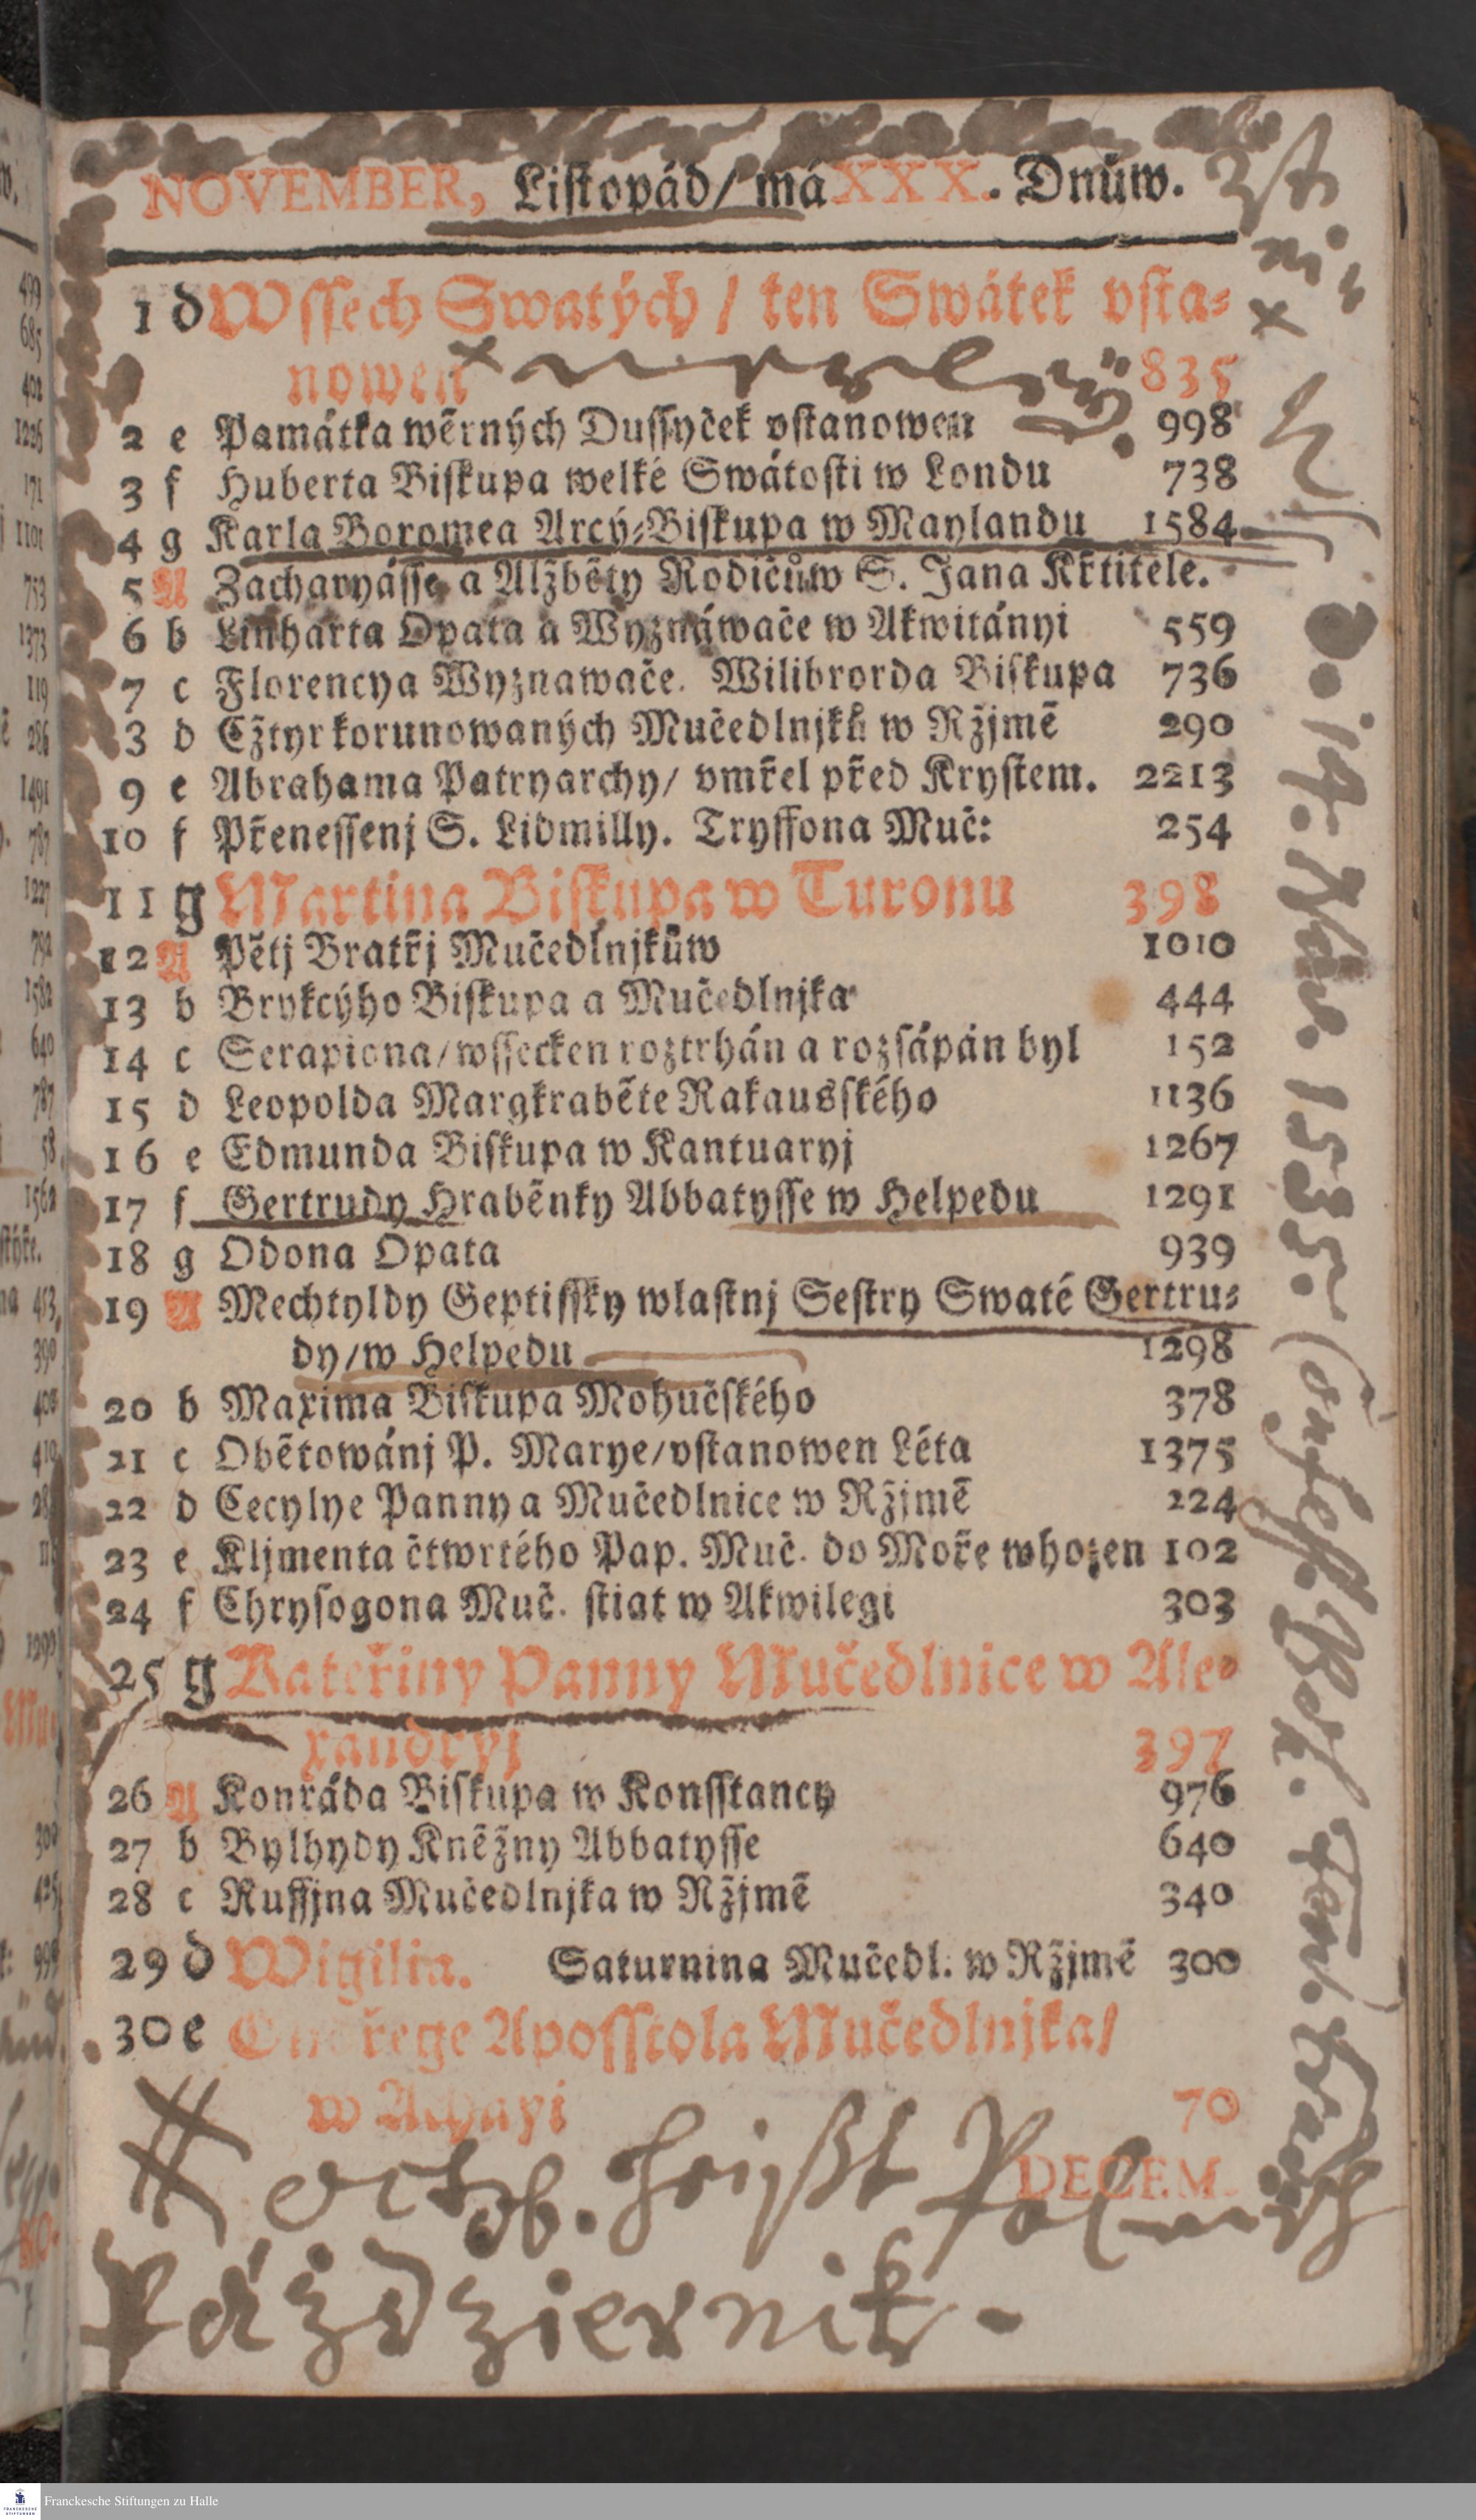 NOVEMBER, Liſtopád/ má XXX. Dnůw.
1 d Wſſech Swatých / ten Swátek vſta⸗
nowen 835
2 e Památka wěrných Duſſyček vſtanowen 998
3 f Huberta Biſkupa welké Swátoſti w Londu 738
4 g Karla Boromea Arcý⸗Biſkupa w Maylandu 1584
5 A Zacharyáſſe a Alžběty Rodičůw S. Jana Křtitele.
6 b Linharta Opata a Wyznáwače w Akwitányi 559
7 c Florencya Wyznawače. Wilibrorda Biſkupa 736
3 d Cžtyr korunowaných Mučedlnjků w Ržjmě 290
9 e Abrahama Patryarchy/ vmřel před Kryſtem. 2213
10 f Přeneſſenj S. Lidmilly. Tryffona Muč: 254
11 g Martina Biſkupa w Turonu 398
12 A Pětj Bratřj Mučedlnjkůw 1010
13 b Brykcýho Biſkupa a Mučedlnjka 444
14 c Serapiona/ wſſecken roztrhán a rozſápán byl 152
15 d Leopolda Margkraběte Rakausſkého 1136
16 e Edmunda Biſkupa w Kantuaryj 1267
17 f Gertrudy Hraběnky Abbatyſſe w Helpedu 1291
18 g Odona Opata 939
19 A Mechtyldy Geptiſſky wlaſtnj Seſtry Swaté Gertru⸗
dy/w Helpedu 1298
20 b Maxima Biſkupa Mohučſkého 378
21 c Obětowánj P. Marye/vſtanowen Léta 1375
22 d Cecylye Panny a Mučedlnice w Ržjmě 224
23 e Kljmenta čtwrtého Pap. Muč. do Moře whozen 102
24 f Chryſogona Muč. ſtiat w Akwilegi 303
25 g Kateřiny Panny Mučedlnice w Ale⸗
xandryj 397
26 A Konráda Biſkupa w Konsſtancy 976
27 b Bylhydy Kněžny Abbatyſſe 640
28 c Ruffjna Mučedlnjka w Ržjmě 340
29 d Wigilia. Saturnina Mučedl. w Ržjmě 300
30 e Ondřege Apoſſtola Mučedlnjka/
w Achayi 70
DECEM.
octob. heiſßt Polniſch
Páździernik.
D. 14. Nov. 1535.
Franckesche Stiftungen zu Halle